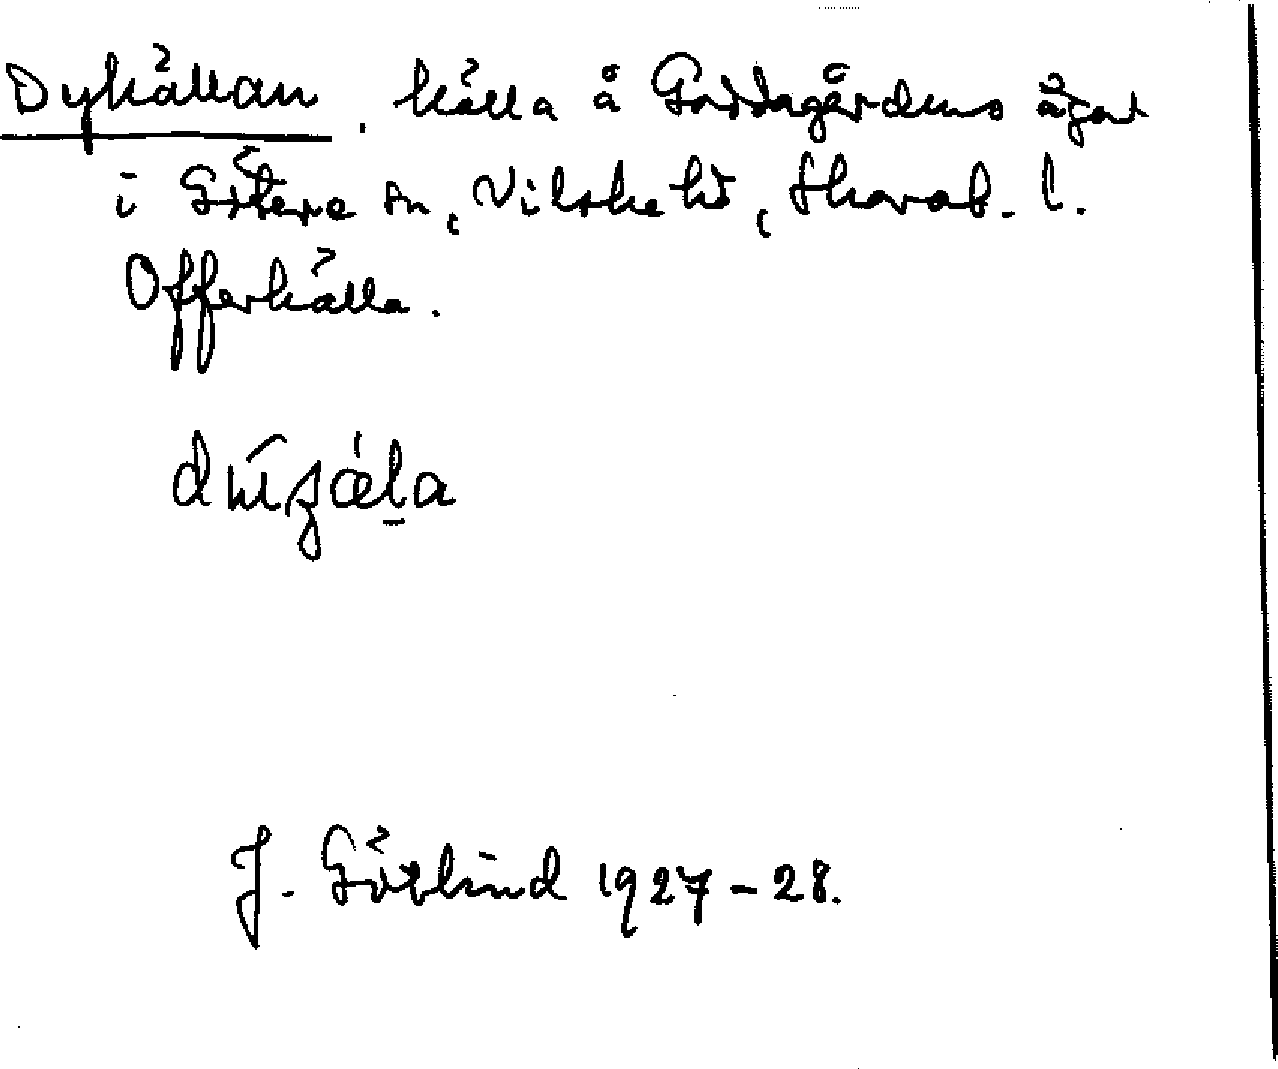 Dykällan, källa å Gordagårdens ägor
i Götene sn, Vilske hd, Skarab. l.
Offerkälla.
J. Götlind 1927-28.